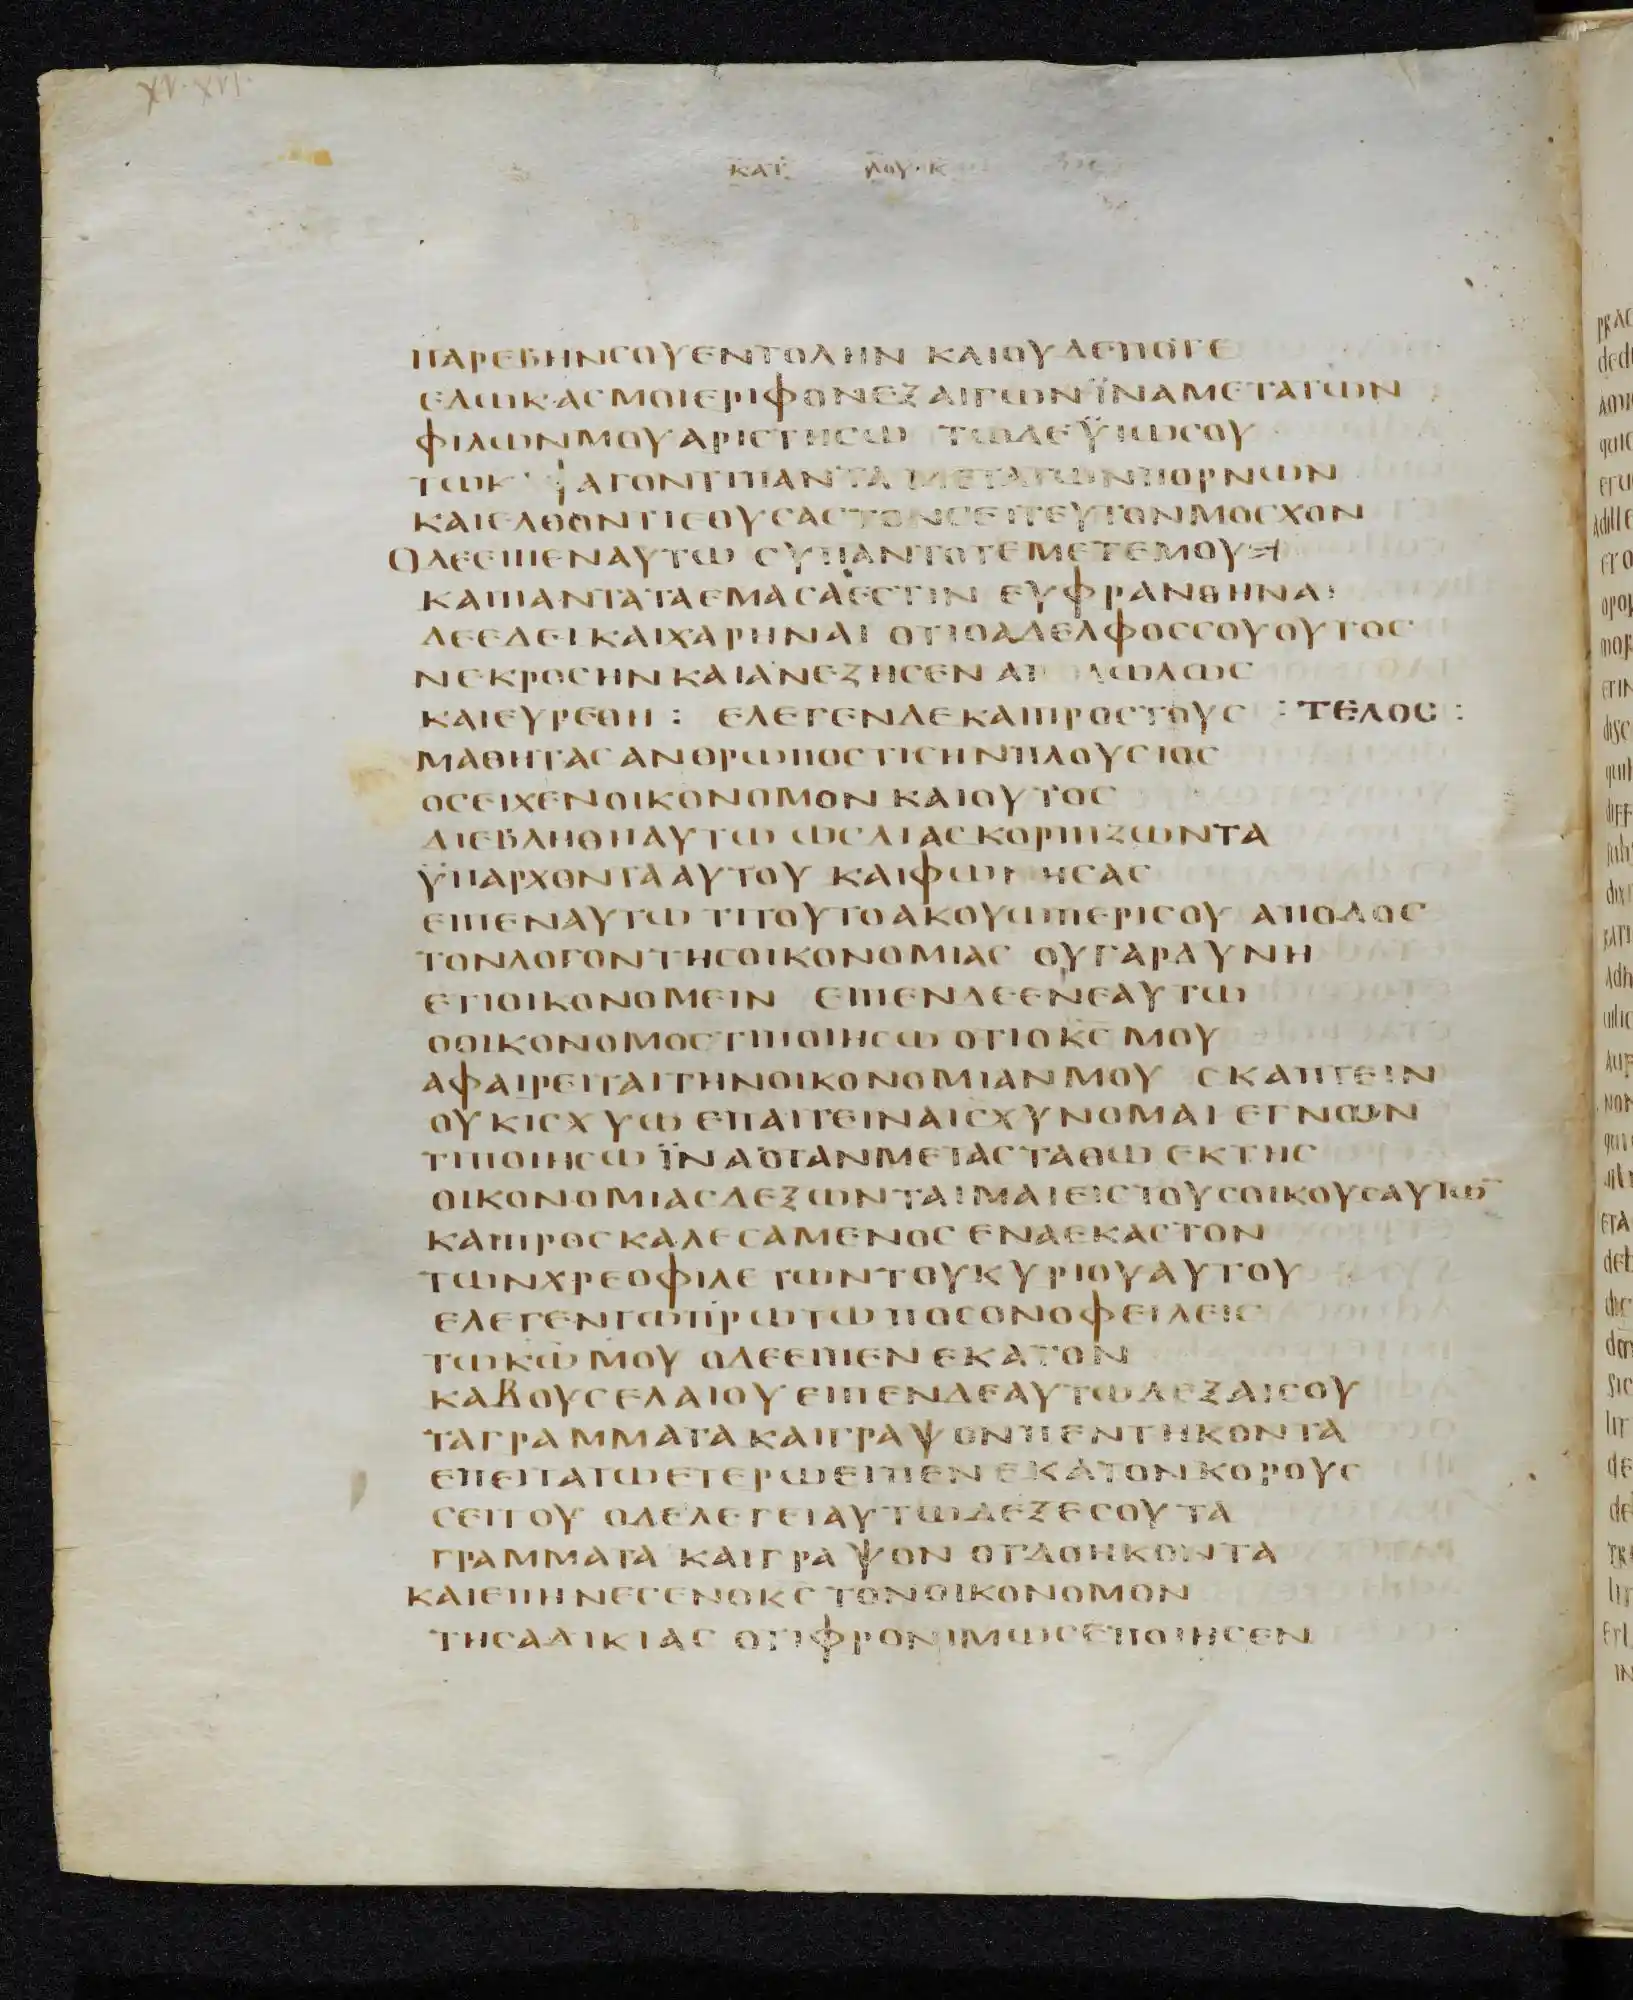 XV·XVI·
ΚΑΤ ΛΟΥ·Κ
ΠΑΡΕΒΗΝϹΟΥΕΝΤΟΛΗΝ ΚΑΙΟΥΔΕΠΟΤΕ
ΕΔΩΚΑϹΜΟΙΕΡΙΦΟΝΕΞΑΙΓΩΝΪΝΑΜΕΤΑΤΩΝ
ΦΙΛΩΝΜΟΥΑΡΙϹΤΗϹΩ ΤΩΔΕΫΙΩϹΟΥ
ΤΩΚ ΦΑΓΟΝΤΙΠΑΝΤΑ ΜΕΤΑΤΩΝΠΟΡΝΩΝ
ΚΑΙΕΛΘΟΝΤΙΕΘΥϹΑϹΤΟΝϹΕΙΤΕΥΤΟΝΜΟϹΧΟΝ
ΟΔΕΕΙΠΕΝΑΥΤΩ ϹΥΠΑΝΤΟΤΕΜΕΤΕΜΟΥ
ΚΑΙΠΑΝΤΑΤΑΕΜΑϹΑΕϹΤΙΝ ΕΥΦΡΑΝΘΗΝΑΙ
ΔΕΕΔΕΙΚΑΙΧΑΡΗΝΑΙ ΟΤΙΟΑΔΕΛΦΟϹϹΟΥΟΥΤΟϹ
ΝΕΚΡΟϹΗΝΚΑΙΑΝΕΖΗϹΕΝ ΑΠ ΛΩΛΩϹ
ΚΑΙΕΥΡΕΘΗ : ΕΛΕΓΕΝΔΕΚΑΙΠΡΟϹΤΟΥϹ :ΤΕΛΟϹ:
ΜΑΘΗΤΑϹΑΝΘΡΩΠΟϹΤΙϹΗΝΠΛΟΥϹΙΟϹ
ΟϹΕΙΧΕΝΟΙΚΟΝΟΜΟΝ ΚΑΙΟΥΤΟϹ
ΔΙΕΒΛΗΘΗΑΥΤΩ ΩϹΔΙΑϹΚΟΡΠΙΖΩΝΤΑ
ΫΠΑΡΧΟΝΤΑΑΥΤΟΥ ΚΑΙΦΩΝΗϹΑϹ
ΕΙΠΕΝΑΥΤΩ ΤΙΤΟΥΤΟΑΚΟΥΩΠΕΡΙϹΟΥ ΑΠΟΔΟϹ
ΤΟΝΛΟΓΟΝΤΗϹΟΙΚΟΝΟΜΙΑϹ ΟΥΓΑΡΔΥΝΗ
ΕΤΙΟΙΚΟΝΟΜΕΙΝ ΕΙΠΕΝΔΕΕΝΕΑΥΤΩ
ΟΟΙΚΟΝΟΜΟϹΤΙΠΟΙΗϹΩ ΟΤΙΟΚϹ ΜΟΥ
ΑΦΑΙΡΕΙΤΑΙΤΗΝΟΙΚΟΝΟΜΙΑΝΜΟΥ ϹΚΑΠΤΕΙΝ
ΟΥΚΙϹΧΥΩ ΕΠΑΙΤΕΙΝΑΙϹΧΥΝΟΜΑΙ ΕΓΝΩΝ
ΤΙΠΟΙΗϹΩ ΪΝΑΟΤΑΝΜΕΤΑϹΤΑΘΩ ΕΚΤΗϹ
ΟΙΚΟΝΟΜΙΑϹΔΕΞΩΝΤΑΙΜΑΙΕΙϹΤΟΥϹΟΙΚΟΥϹΑΥΤΩ̅
ΚΑΙΠΡΟϹΚΑΛΕϹΑΜΕΝΟϹ ΕΝΑΕΚΑϹΤΟΝ
ΤΩΝΧΡΕΟΦΙΛΕΤΩΝΤΟΥΚΥΡΙΟΥΑΥΤΟΥ
ΕΛΕΓΕΝΤΩΠΡΩΤΩ ΠΟϹΟΝΟΦΕΙΛΕΙϹ
ΤΩΚΩ ΜΟΥ ΟΔΕΕΙΠΕΝ ΕΚΑΤΟΝ
ΚΑΒΟΥϹΕΛΑΙΟΥ ΕΙΠΕΝΔΕΑΥΤΩΔΕΞΑΙϹΟΥ
ΤΑΓΡΑΜΜΑΤΑ ΚΑΙΓΡΑΨΟΝΠΕΝΤΗΚΟΝΤΑ
ΕΠΕΙΤΑΤΩΕΤΕΡΩΕΙΠΕΝ ΕΚΑΤΟΝΚΟΡΟΥϹ
ϹΕΙΤΟΥ ΟΔΕΛΕΓΕΙΑΥΤΩΔΕΞΕϹΟΥΤΑ
ΓΡΑΜΜΑΤΑ ΚΑΙΓΡΑΨΟΝ ΟΓΔΟΗΚΟΝΤΑ
ΚΑΙΕΠΗΝΕϹΕΝΟΚϹ ΤΟΝΟΙΚΟΝΟΜΟΝ
ΤΗϹΑΔΙΚΙΑϹ ΟΤΙΦΡΟΝΙΜΩϹΕΠΟΙΗϹΕΝ